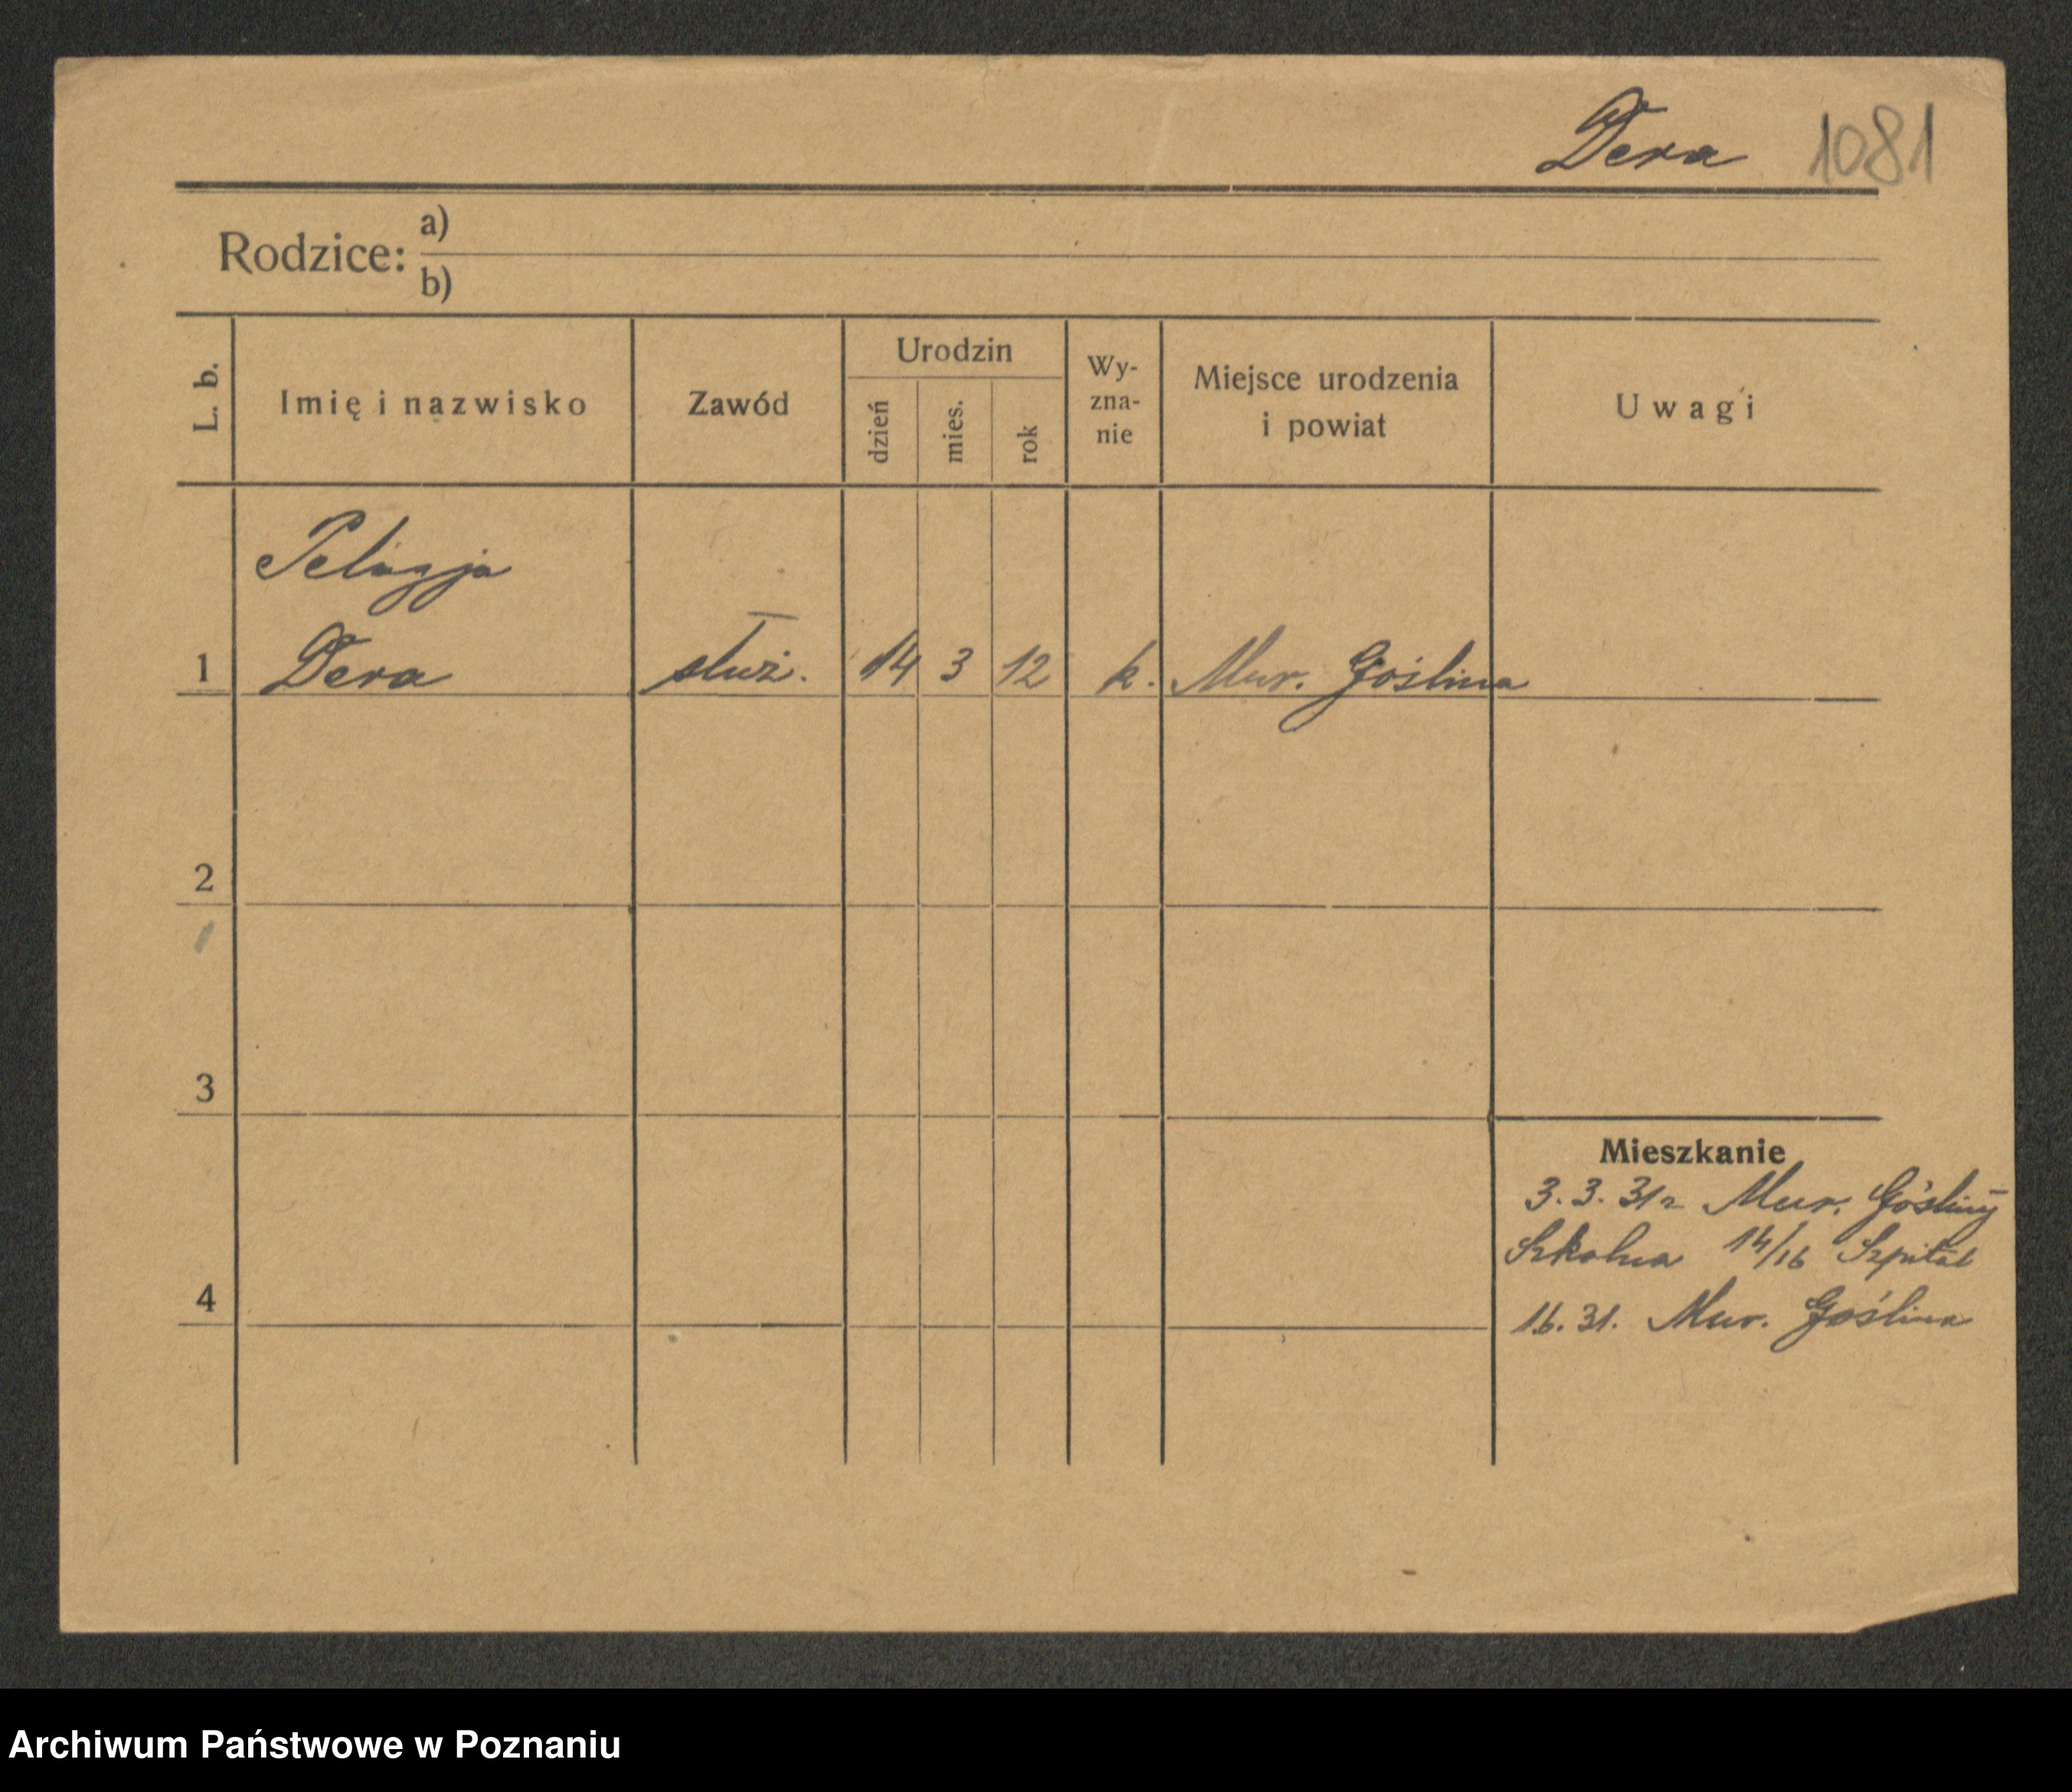 Dera 1081
Rodzice: a)
b)
L. b.
Imię i nazwisko
Zawód
Urodzin
dzień
mies.
rok
Wy-
zna-
nie
Miejsce urodzenia
i powiat
Uwagi
Pelagja
1 Dera służ. 14 3 12 k. Mur. Goślina
2
3
Mieszkanie
3. 3. 31 z Mur. Gośliny
Szkolna 14/16 Szpital
4
1.6. 31. Mur. Goślina
Archiwum Państwowe w Poznaniu